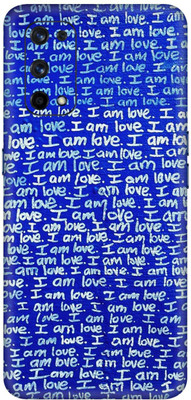 I am love. I am love.
love. I am love. I am
am love. I am love.
I am love. I am love
love. I am love. I am
I am love. I am love.
love. I am love. I am love.
I am love. I am love. I am
love. I am love. I am love.
I am love. I am love. I am
love. I am love. I am love.
I am love. I am love. I am
love. I am love. I am love.
I am love. I am love. I am
love. I am love. I am love.
I am love. I am love. I am
love. I am love. I am love.
I am love. I am love. I am
love. I am love. I am love.
I am love. I am love. I am
love. I am love. I am love.